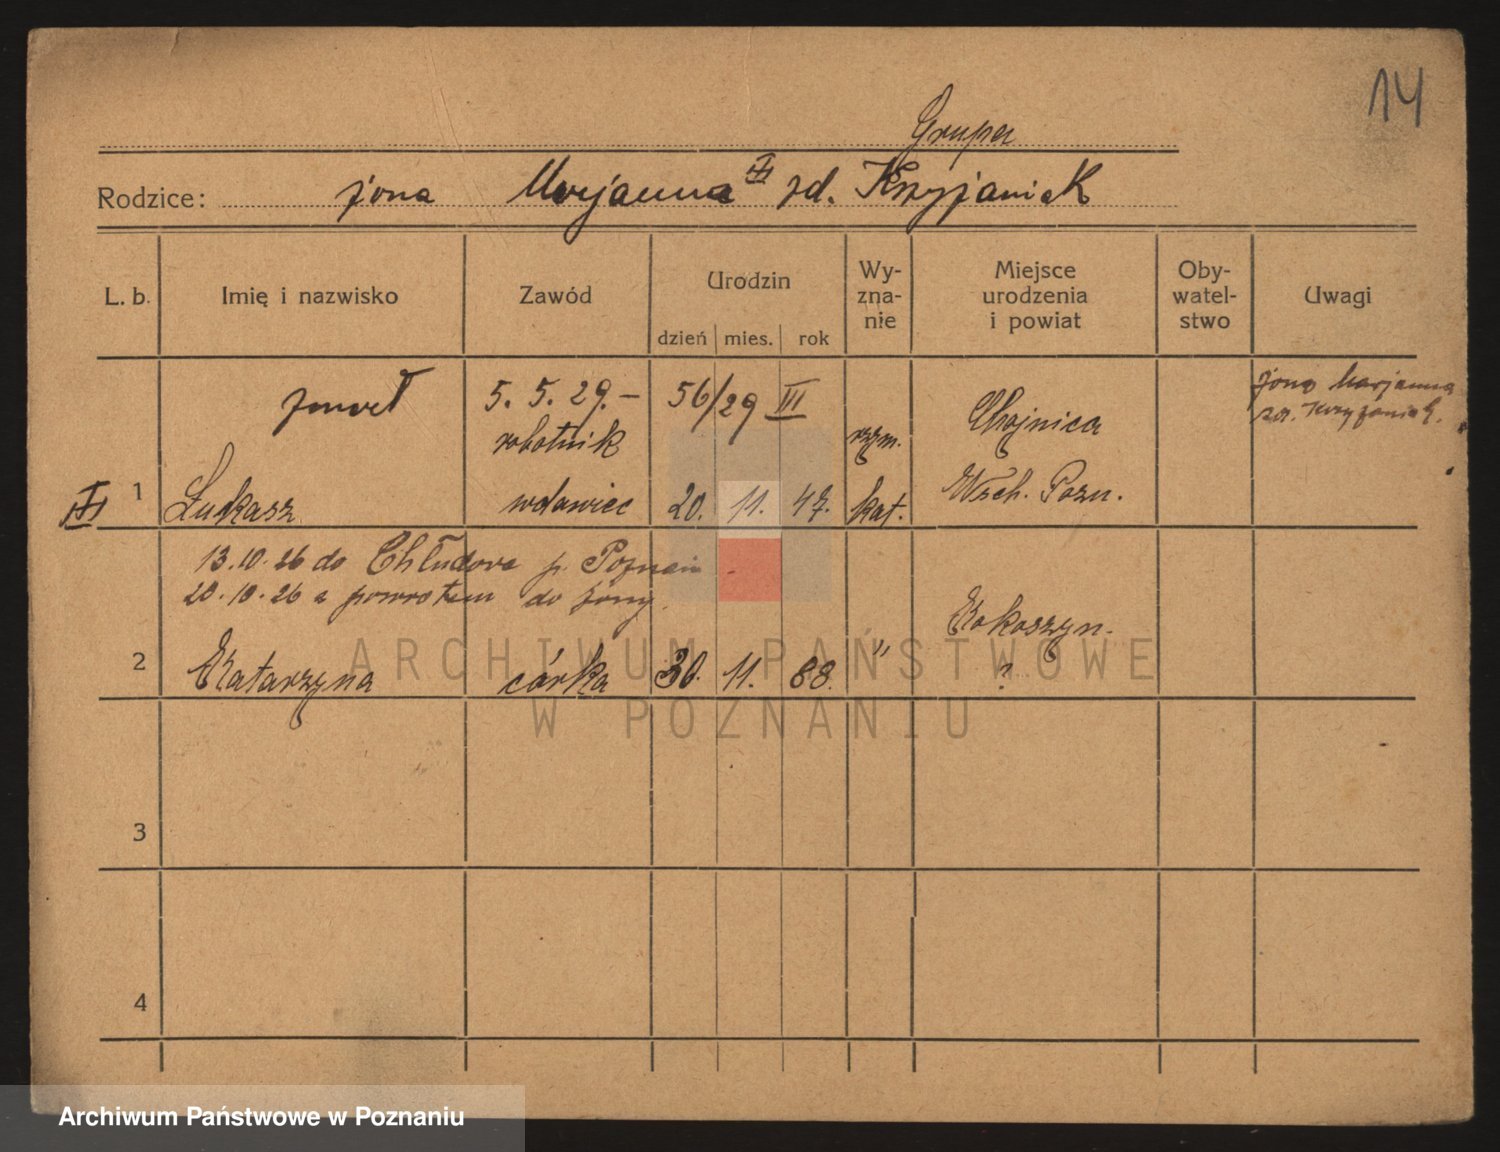 14
Grupa
Rodzice: żona Marjanna zd. Krzyżaniak
L. b. Imię i nazwisko Zawód Urodzin dzień mies. rok Wy-zna-nie Miejsce urodzenia i powiat Oby-watel-stwo Uwagi
zmarł 5. 5. 29. – 56/29 III żona Marjanna
zd. Krzyżaniak.
robotnik rzym. Chojnica
1 Łukasz wdowiec 20. 11. 47. kat. Wsch. Pozn.
13.10.26 do Chłudowa p. Poznań
20.10.26 z powrotem do żony.
Rokoszyn.
2 Katarzyna córka 30. 11. 88. " ?
3
4
ARCHIWUM PAŃSTWOWE
W POZNANIU
Archiwum Państwowe w Poznaniu